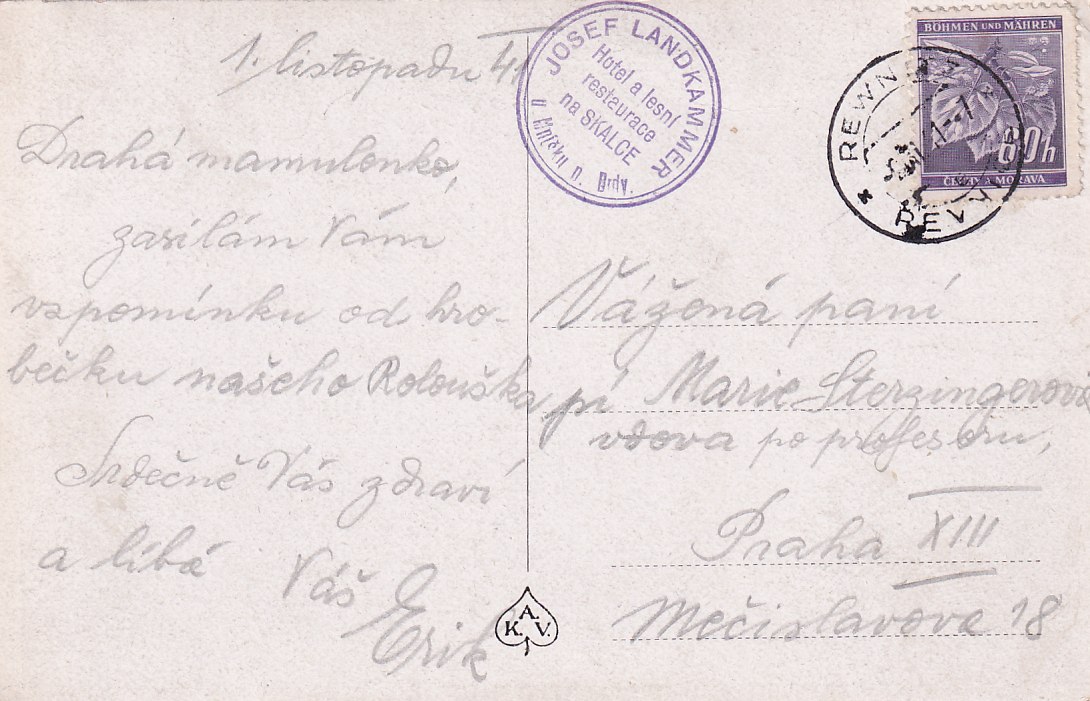 1. listopadu 41
Drahá mamulenko,
zasílám Vám
vzpomínku od hro-
bečku našeho Rolouška
Srdečně Vás zdraví
a líbá
Váš
Erik
JOSEF LANDKAMMER
Hotel a lesní
restaurace
na SKALCE
u Mníšku p. Brdy.
BÖHMEN UND MÄHREN
80h
ČECHY A MORAVA
REWNITZ
ŘEVNICE
Vážená paní
pí Marie Sterzingerová
vdova po profesoru,
Praha XIII
Mečislavova 18
K. A. V.